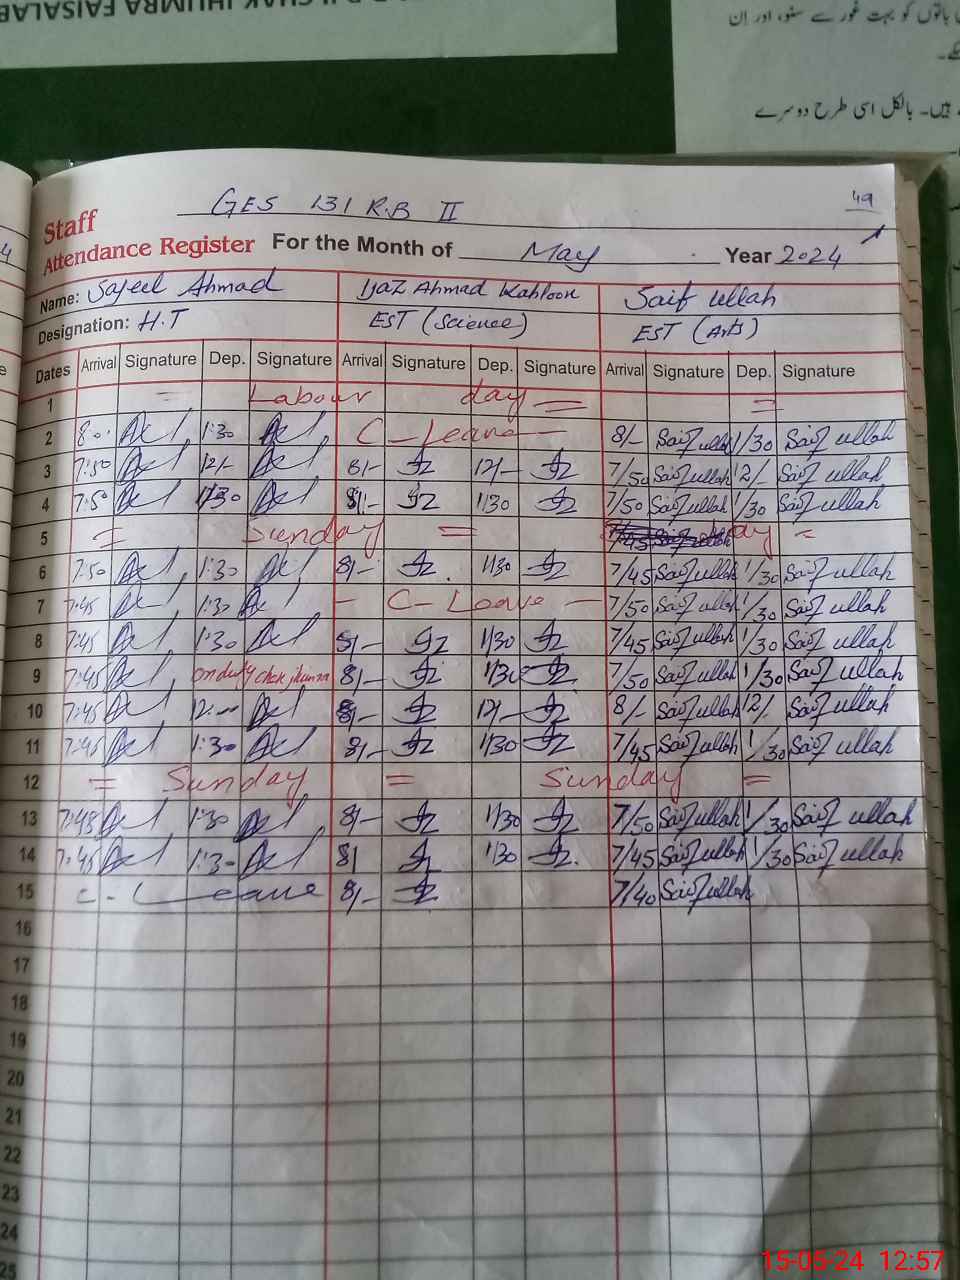 باتوں کو بہت غور سے سنو، اور اِن
ہیں۔ بالکل اسی طرح دوسرے
GES 131 R.B II
49
Staff
Attendance Register For the Month of May Year 2024
Name: Sajeel Ahmad Ijaz Ahmad Kahloon Saif ullah
Designation: H.T EST (Science) EST (Arts)
Dates Arrival Signature Dep. Signature Arrival Signature Dep. Signature Arrival Signature Dep. Signature
1 = Labour day = =
2 8:0 1:30 C-Leave - 8/- Saif ullah 1/30 Saif ullah
3 7:50 12/- 8/- 12/- 7/50 Saif ullah 12/- Saif ullah
4 7:50 1/30 8/- 1/30 7/50 Saif ullah 1/30 Saif ullah
5 = Sunday = day =
6 7:50 1:30 8/- 1/30 7/45 Saif ullah 1/30 Saif ullah
7 7:45 1:30 - C-Leave - 7/50 Saif ullah 1/30 Saif ullah
8 7:45 1:30 8/- 1/30 7/45 Saif ullah 1/30 Saif ullah
9 7:45 on duty chak jhumra 8/- 1/30 7/50 Saif ullah 1/30 Saif ullah
10 7:45 12:- 8/- 12/- 8/- Saif ullah 12/- Saif ullah
11 7:45 1:30 8/- 1/30 7/45 Saif ullah 1/30 Saif ullah
12 = Sunday = Sunday =
13 7:45 1:30 8/- 1/30 7/50 Saif ullah 1/30 Saif ullah
14 7:45 1:30 8/ 1/30 7/45 Saif ullah 1/30 Saif ullah
15 C-Leave 8/- 7/40 Saif ullah
16
17
18
19
20
21
22
23
24
25
15-05-24 12:57